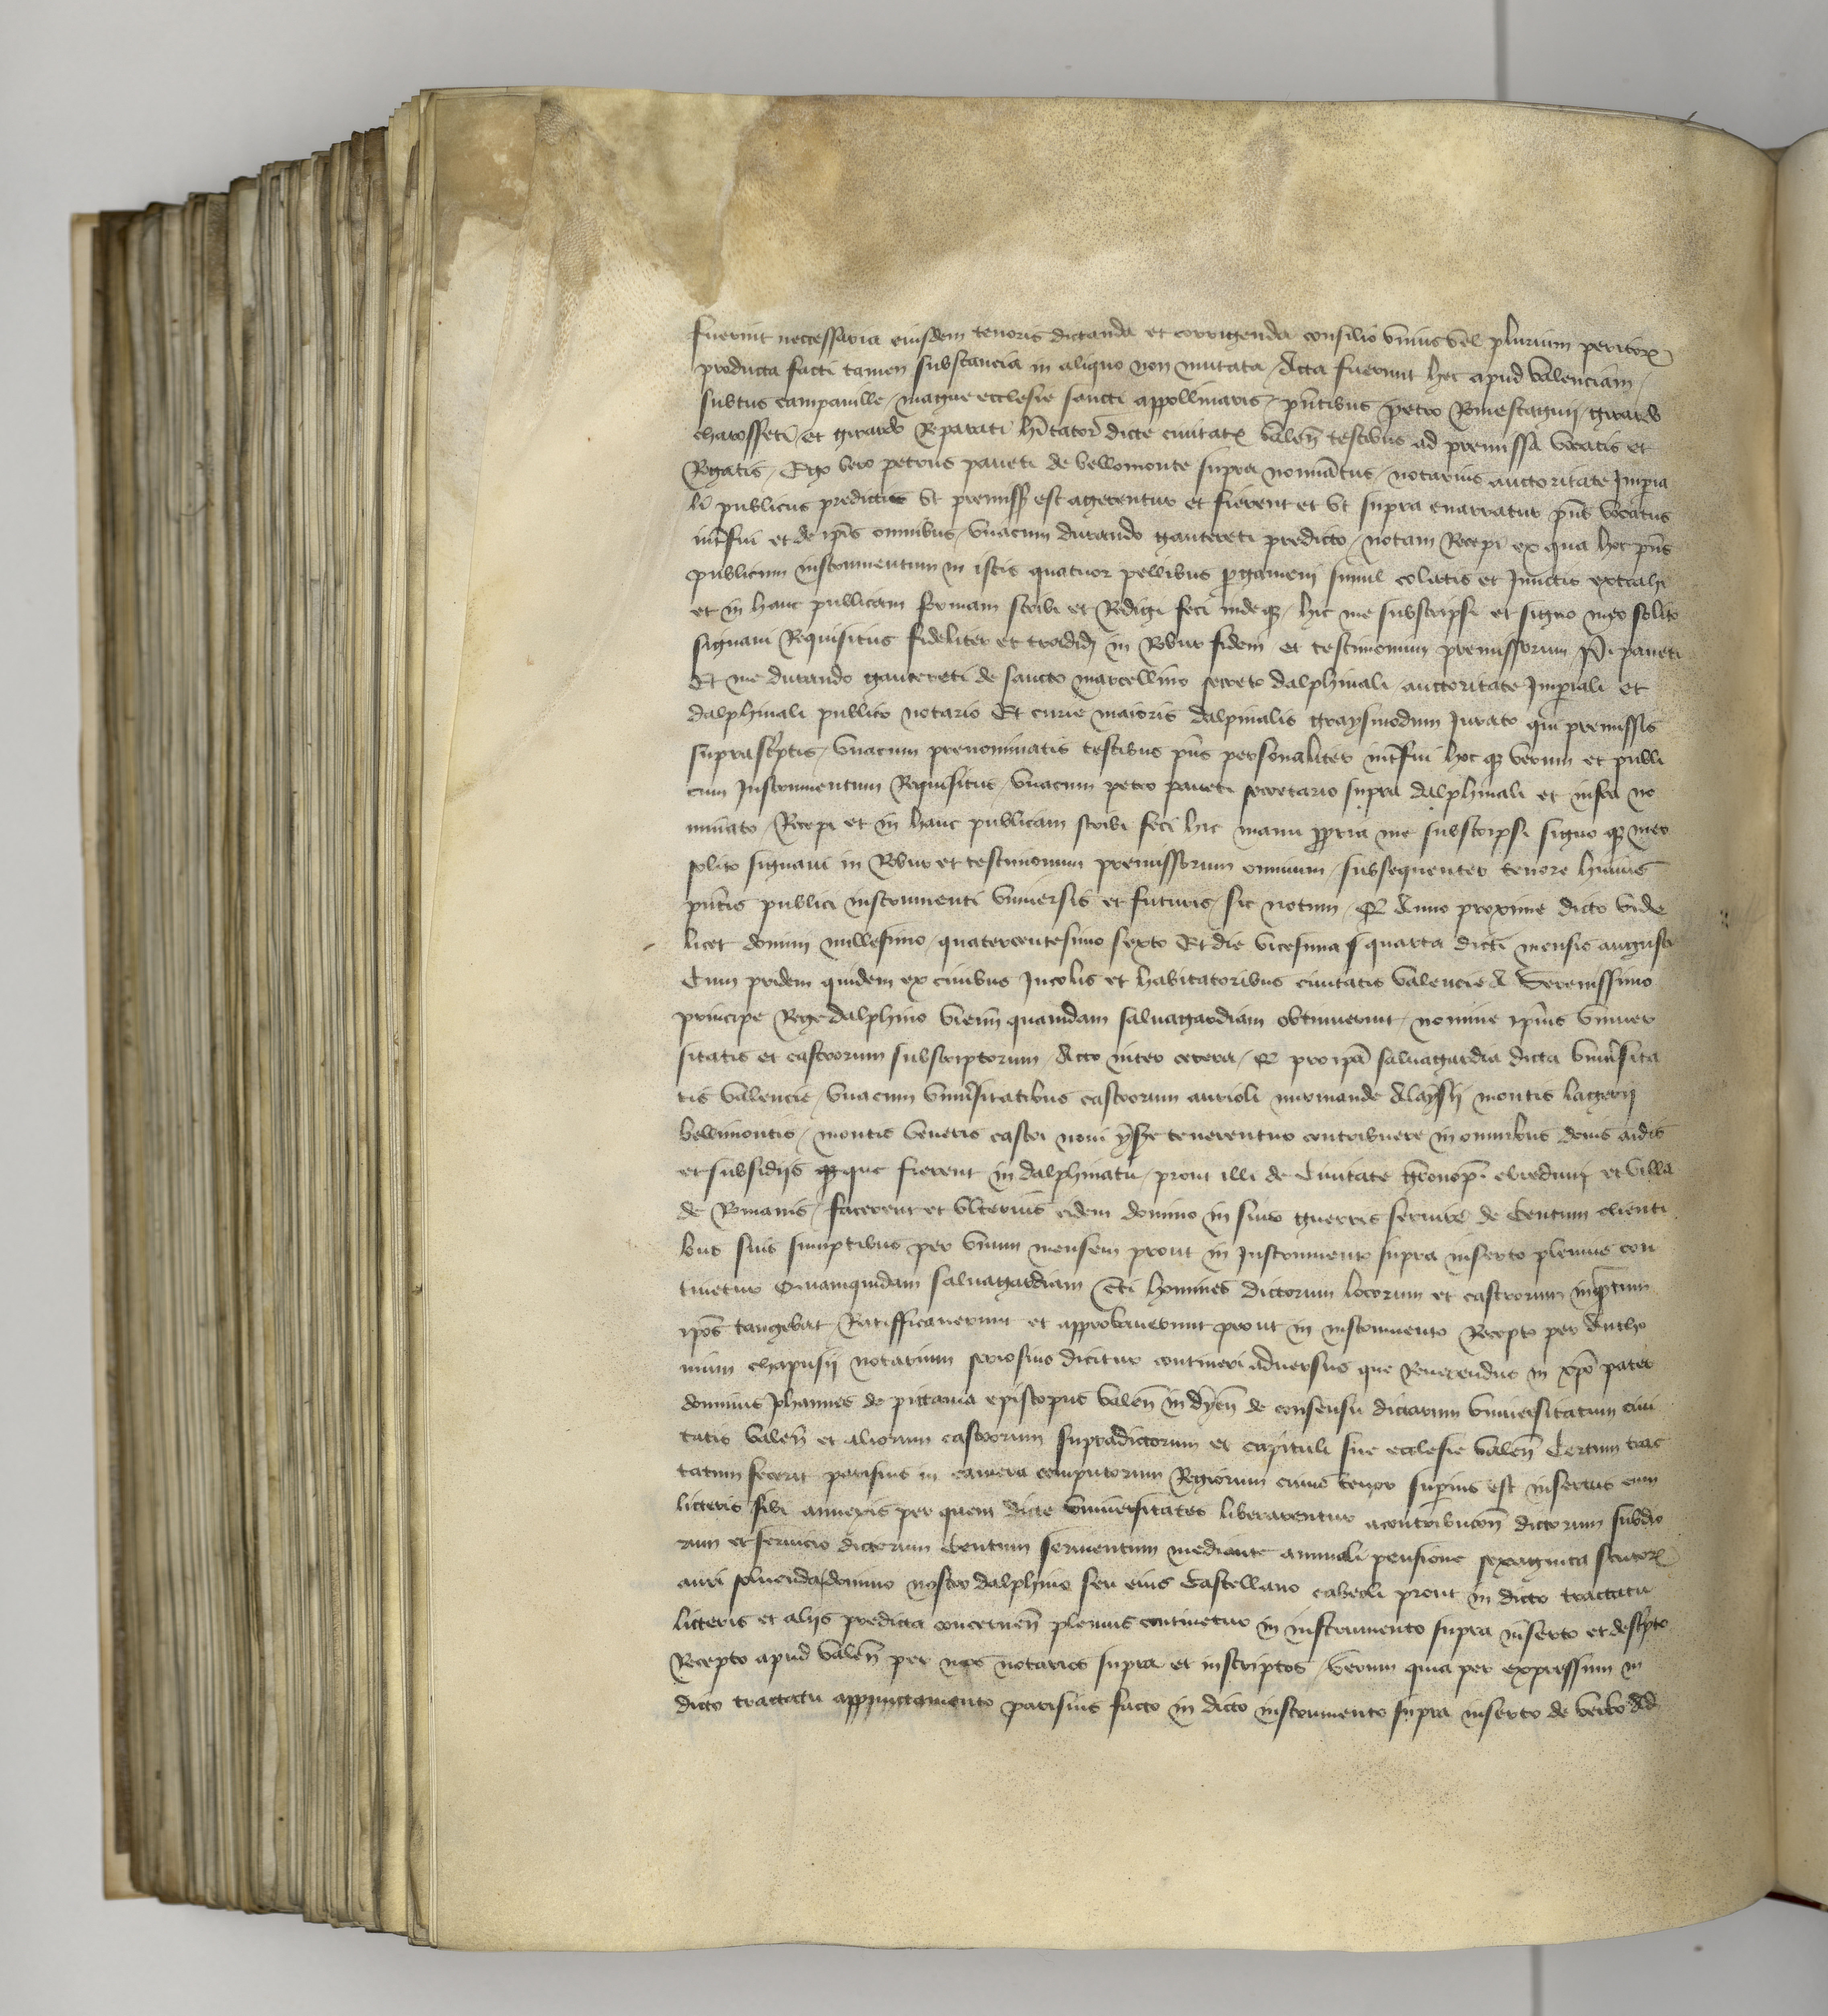 fuerint neccessaria eiusdem tenoris dictanda et corrigenda consilio vnius vel plurium peritorꝝ
producta facti tamen substancia in aliquo non mutata / Acta fuerunt hec apud valenciam /
subtus campanille / magne ecclesie sancti appollinaris / pn̄tibus petro Romestagnij / girardo
charosseti / et girardo Reparati hītatorꝰ dicte ciuitatꝭ valen̄ testibus ad premissa vocatis et
Rogatis / Ego vero petrus paneti de bellomonte supra nomīatus / notarius auctoritate Impia
li publicus predictis vt premissꝭ est agerentur et fierent et vt supra enarratur pn̄s vocatus
int̄fui et de ip̄is omnibus / vnacum durando gautereti predicto / notam Recepi ex qua hoc pn̄s
publicum instrumentum in istis quatuor pellibus pgameni simul colatis et Iunctis extrahi
et in hanc publicam formam scribi et Redigi feci indeqꝫ / hic me subscripsi et signo meo solito
signaui Requisitus fideliter et tradidi in Robur fidem et testimonium premissorum / P. paneti
Et me durando gautereti de sancto marcellino secreto dalphinali / auctoritate Imperiali et
dalphinali publico notario Et curie maioris dalpinalis graysiuodum Iurato qui premissis
suprascptis / vnacum prenominatis testibus pn̄s personaliter int̄fui hoc qꝫ verum et publi
cum Instrumentum Requisitus / vnacum petro paneti secretario supra dalphinali et infra no
minato / Recepi et in hanc publicam scribi feci hic manu ppria me subscripsi signo qꝫ meo
solito signaui in Robur et testimonium premissorum omnium / subsequenter tenore huius
pn̄tis publici instrumenti vniuersis et futuris / sic notum / Qꝰ Anno proxime dicto vide
licet domini millesimo / quatercentesimo sexto Et die vicesima quarta dicti mensis augusti
Cum pridem quidem ex ciuibus Incolis et habitatoribus ciuitatis valencie A Serenissimo
principe Rege dalphino vienn̄ quamdam saluagardiam obtinuerint / nomine ip̄ius vniuer
sitatis et castrorum subscriptorum / Acto inter cetera / Qꝰ pro ip̄a saluagardia dicta vniūsita
tis valencie / vnacum vniūsitatibus castrorum aurioli mirmande Alaysij montis lagerij
bellimontis / montis veneris castri noui ysꝭ tenerentur contribuere in omnibus donis aidis
et subsidijs que fierent in dalphinatu / prout illi de Ciuitate gronop̄. ebreduni et villa
de Romanis / facerent et vlterius eidem domino in suis guerris seruire de Centum clienti
bus suis sumptibus per vnum mensem prout in Instrumento supra inserto plenius con
tinetur Quamquidam saluagardiam Eti homines dictorum locorum et castrorum inqꝫtum
ip̄os tangebat / Ratifficauerunt et approbauerunt prout in instrumento Recepto per Antho
nium chapusij notarium seriosius dicitur contineri aduersus que Reuerendus in xp̄o pater
dominus Johannes de pictauia episcopus valen̄ in dȳen̄ de consensu dictarum vniuersitatum ciui
tatis valen̄ et aliorum castrorum supradictorum et capituli sue ecclesie valen̄ Certum trac
tatum fecerit parisius in camera computorum Regiorum cuius tenor supius est insertus cum
litteris sibi annexis per quem dicte vniuersitates liberarentur acontribucon̄ dictorum subdio
rum et seruicio dictorum Centum seruientum mediante annuali pensione sexaginta scutorꝝ
auri soluenda domino nostro dalphino seu eius Castellano cabeoli prout in dicto tractatu
litteris et alijs predicta concernen̄ plenius continetur in instrumento supra inserto et descpto
Recepto apud valen̄ per nos notarios supra et inscriptos / verum quia per expressum in
dicto tractatu appunctamento parisius facto in dicto instrumento supra inserto de verbo ad